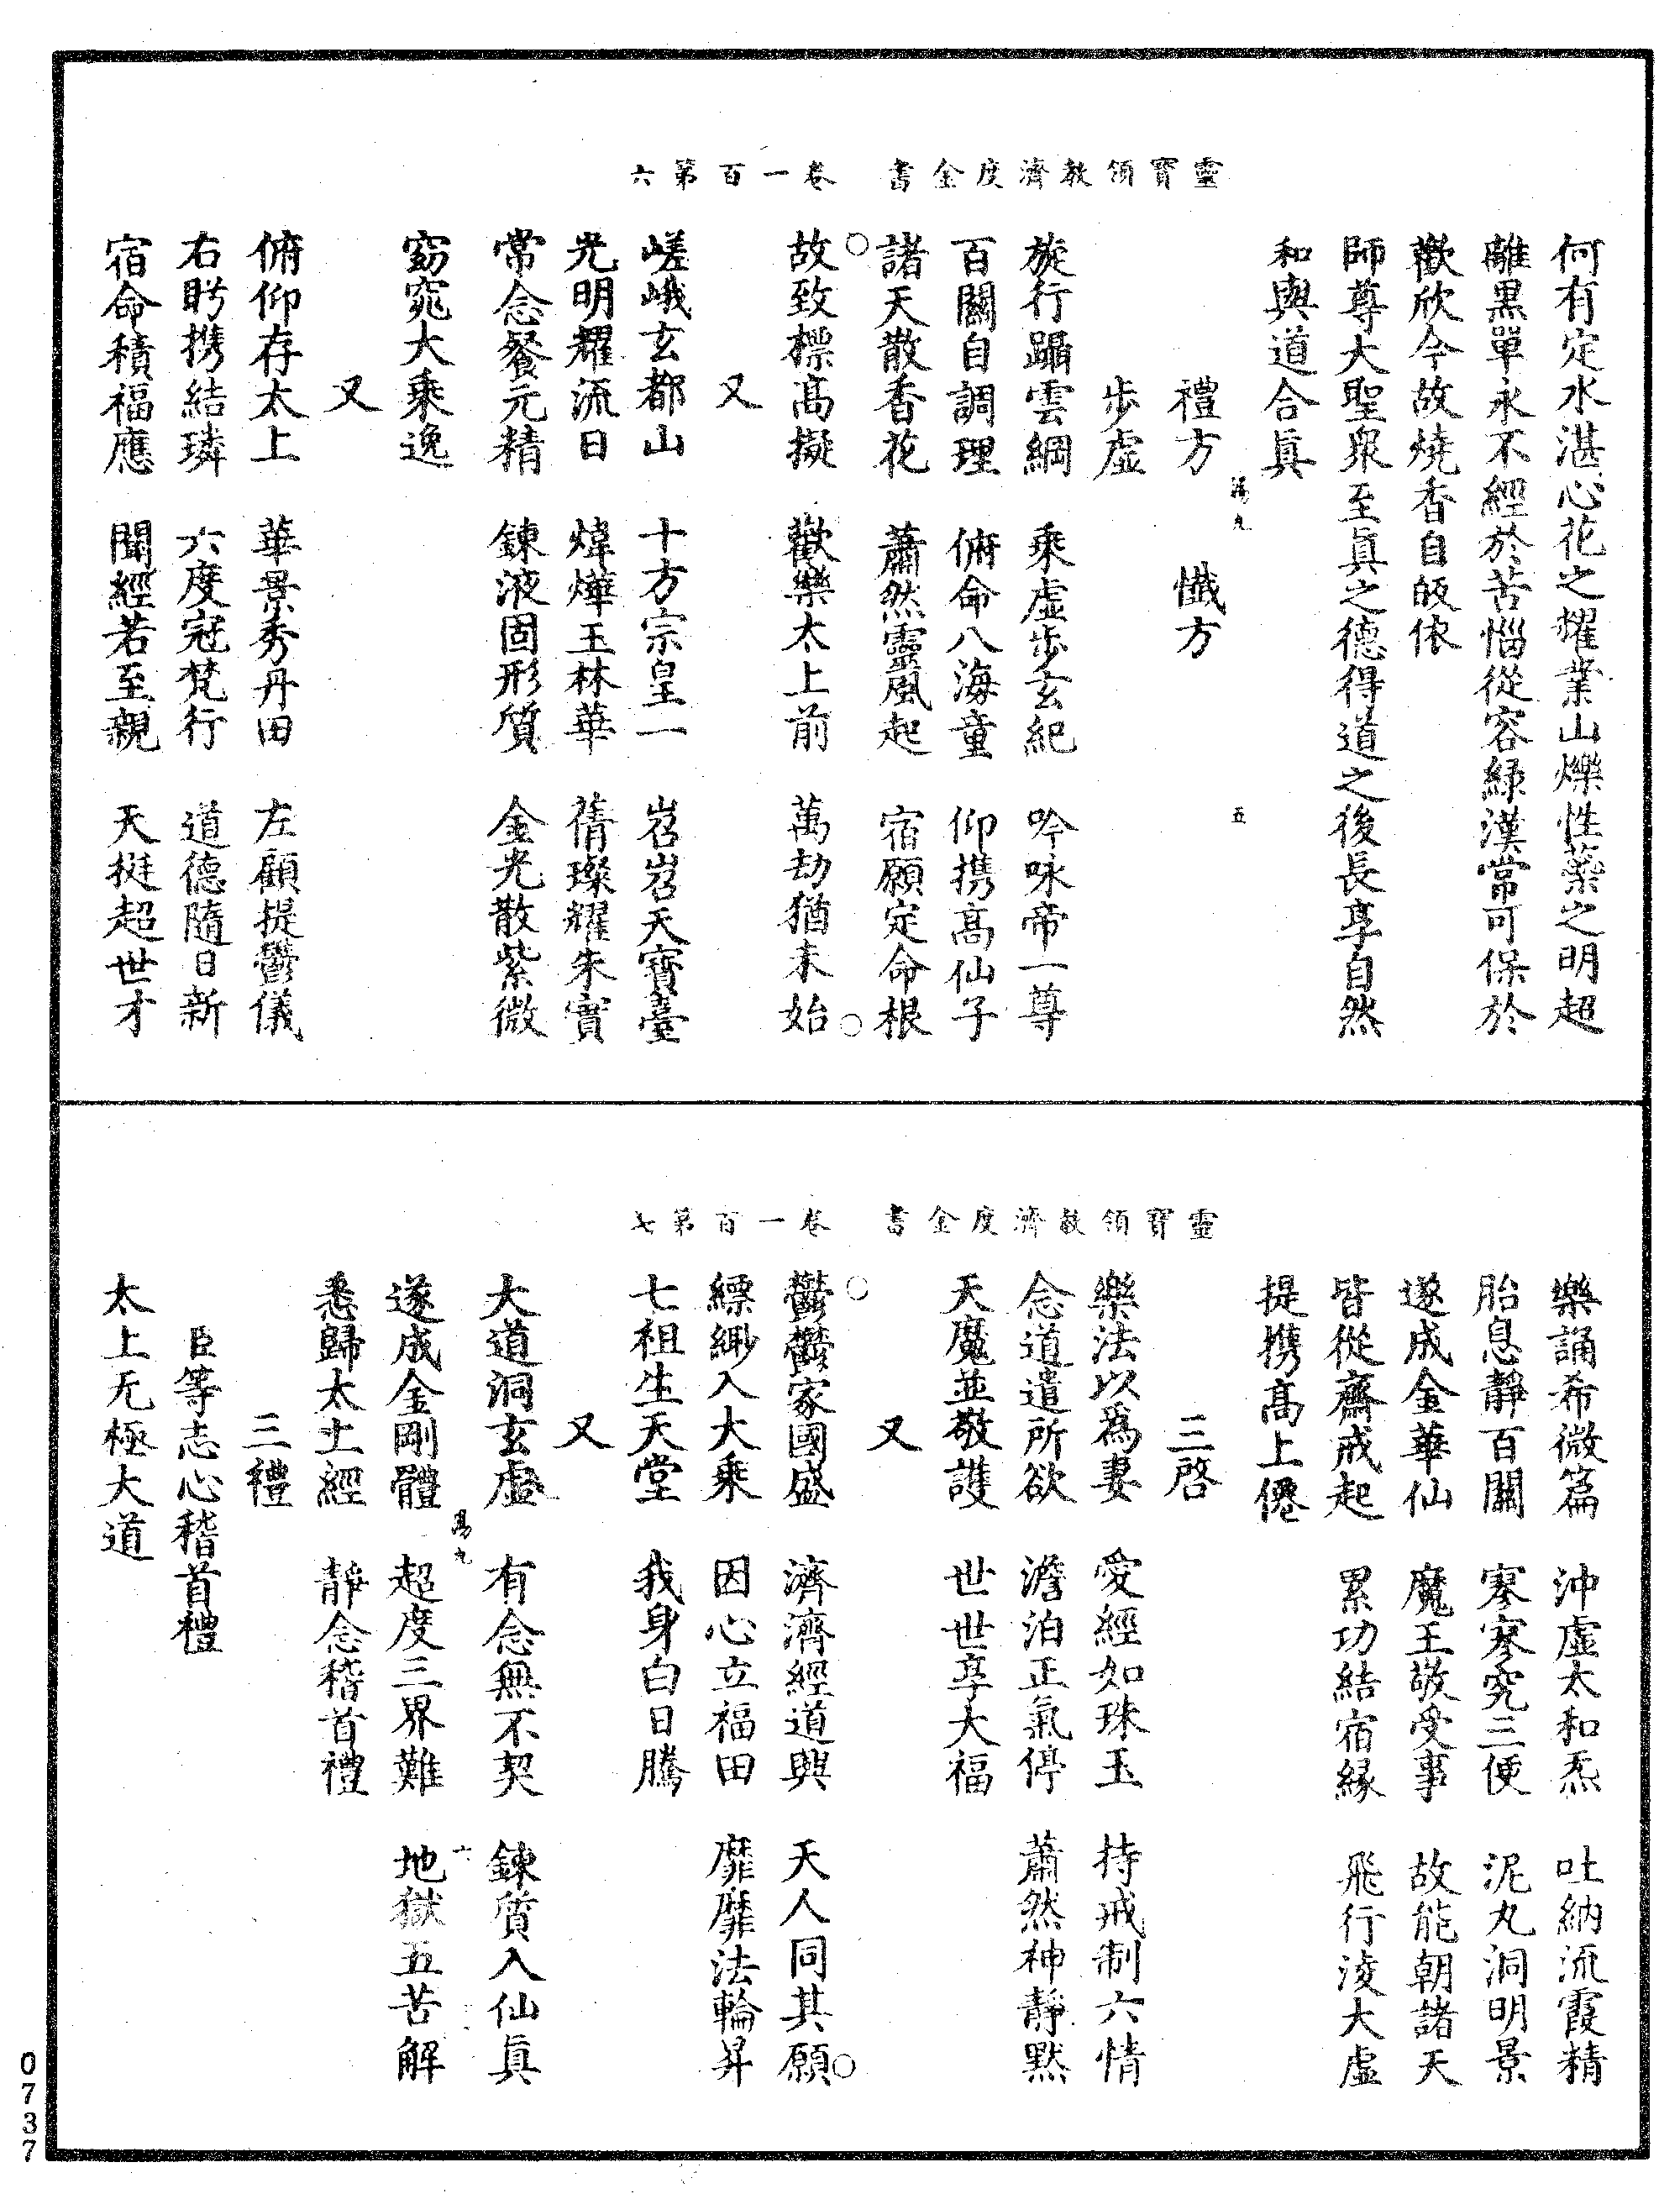 靈寶領教濟度金書　卷一百第六
何有定水湛心花之耀業山爍性蘂之明超
離黒單永不經於苦惱從容緑漢常可保於
歡欣今故燒香自皈依
師尊大聖衆至眞之德得道之後長享自然
和與道合眞
湯九　五
禮方　懺方
步虛
旋行躡雲綱　乘虛步玄紀　吟咏帝一尊
百關自調理　俯命八海童　仰携高仙子
諸天散香花　蕭然靈風起　宿願定命根
故致標高擬　歡樂太上前　萬劫猶未始
又
嵯峨玄都山　十方宗皇一　岧岧天寶臺
光明耀流日　煒燁玉林華　蒨璨耀朱實
常念餐元精　鍊液固形質　金光散紫微
窈窕大乘逸
又
俯仰存太上　華景秀丹田　左顧提鬱儀
右眄携結璘　六度冠梵行　道德隨日新
宿命積福應　聞經若至親　天挺超世才
靈寶領教濟度金書　卷一百第七
樂誦希微篇　沖虛太和炁　吐納流霞精
胎息靜百關　寥寥究三便　泥丸洞明景
遂成金華仙　魔王敬受事　故能朝諸天
皆從齋戒起　累功結宿緣　飛行淩大虛
提携高上僊
三啓
樂法以爲妻　愛經如珠玉　持戒制六情
念道遣所欲　澹泊正氣停　蕭然神靜默
天魔並敬護　世世享大福
又
鬱鬱家國盛　濟濟經道興　天人同其願
縹緲入大乘　因心立福田　靡靡法輪昇
七祖生天堂　我身白日騰
又
大道洞玄虛　有念無不契　鍊質入仙眞
湯九　六
遂成金剛體　超度三界難　地獄五苦解
悉歸太上經　靜念稽首禮
三禮
臣等志心稽首禮
太上无極大道
0737